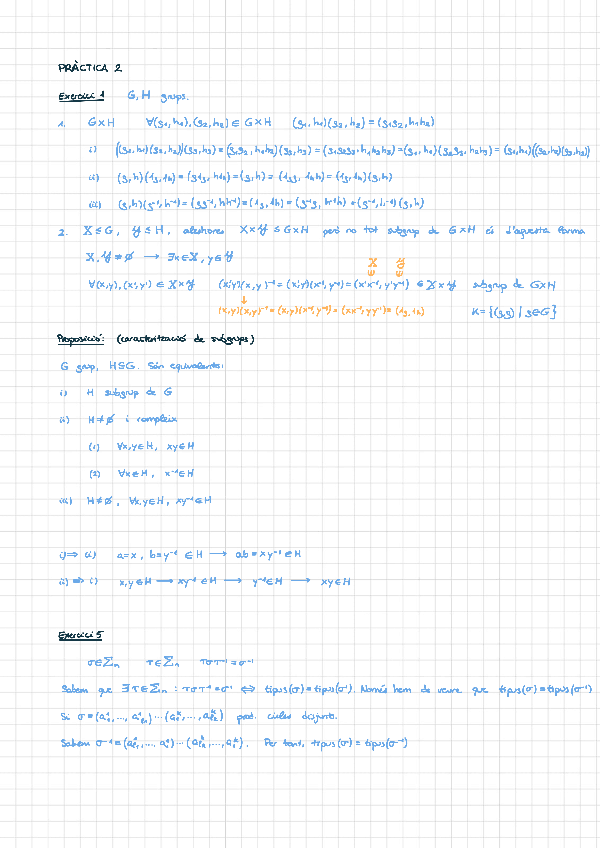 PRÀCTICA 2
Exercici 1 G, H grups.
1. G×H ∀(g₁,h₁),(g₂,h₂)∈G×H (g₁,h₁)(g₂,h₂)=(g₁g₂,h₁h₂)
i) ((g₁,h₁)(g₂,h₂))(g₃,h₃)=(g₁g₂,h₁h₂)(g₃,h₃)=(g₁g₂g₃,h₁h₂h₃)=(g₁,h₁)(g₂g₃,h₂h₃)=(g₁,h₁)((g₂,h₂)(g₃,h₃))
ii) (g,h)(1g,1h)=(g1g,h1h)=(g,h)=(1gg,1hh)=(1g,1h)(g,h)
iii) (g,h)(g⁻¹,h⁻¹)=(gg⁻¹,hh⁻¹)=(1g,1h)=(g⁻¹g,h⁻¹h)=(g⁻¹,h⁻¹)(g,h)
2. X≤G, Y≤H, aleshores X×Y≤G×H però no tot subgrup de G×H és d'aquesta forma
X,Y≠∅ → ∃x∈X, y∈Y
X Y
∀(x,y),(x',y')∈X×Y (x',y')(x,y)⁻¹=(x',y')(x⁻¹,y⁻¹)=(x'x⁻¹,y'y⁻¹)∈X×Y subgrup de G×H
(x,y)(x,y)⁻¹=(x,y)(x⁻¹,y⁻¹)=(xx⁻¹,yy⁻¹)=(1g,1h) K={(g,g) | g∈G}
Proposició: (caracterització de subgrups)
G grup, H⊆G. Són equivalents:
i) H subgrup de G
ii) H≠∅ i compleix
(1) ∀x,y∈H, xy∈H
(2) ∀x∈H, x⁻¹∈H
iii) H≠∅, ∀x,y∈H, xy⁻¹∈H
i)⇒ii) a=x, b=y⁻¹∈H → ab=xy⁻¹∈H
ii)⇒i) x,y∈H → xy⁻¹∈H → y⁻¹∈H → xy∈H
Exercici 5
σ∈Σₙ τ∈Σₙ τστ⁻¹=σ⁻¹
Sabem que ∃τ∈Σₙ : τστ⁻¹=σ⁻¹ ⇔ tipus(σ)=tipus(σ⁻¹). Només hem de veure que tipus(σ)=tipus(σ⁻¹)
Si σ=(a₁¹,...,a¹ℓ₁)···(a₁ᵏ,...,aᵏℓₖ) prod. cicles disjunts.
Sabem σ⁻¹=(a¹ℓ₁,...,a₁¹)···(aᵏℓₖ,...,a₁ᵏ). Per tant, tipus(σ)=tipus(σ⁻¹)